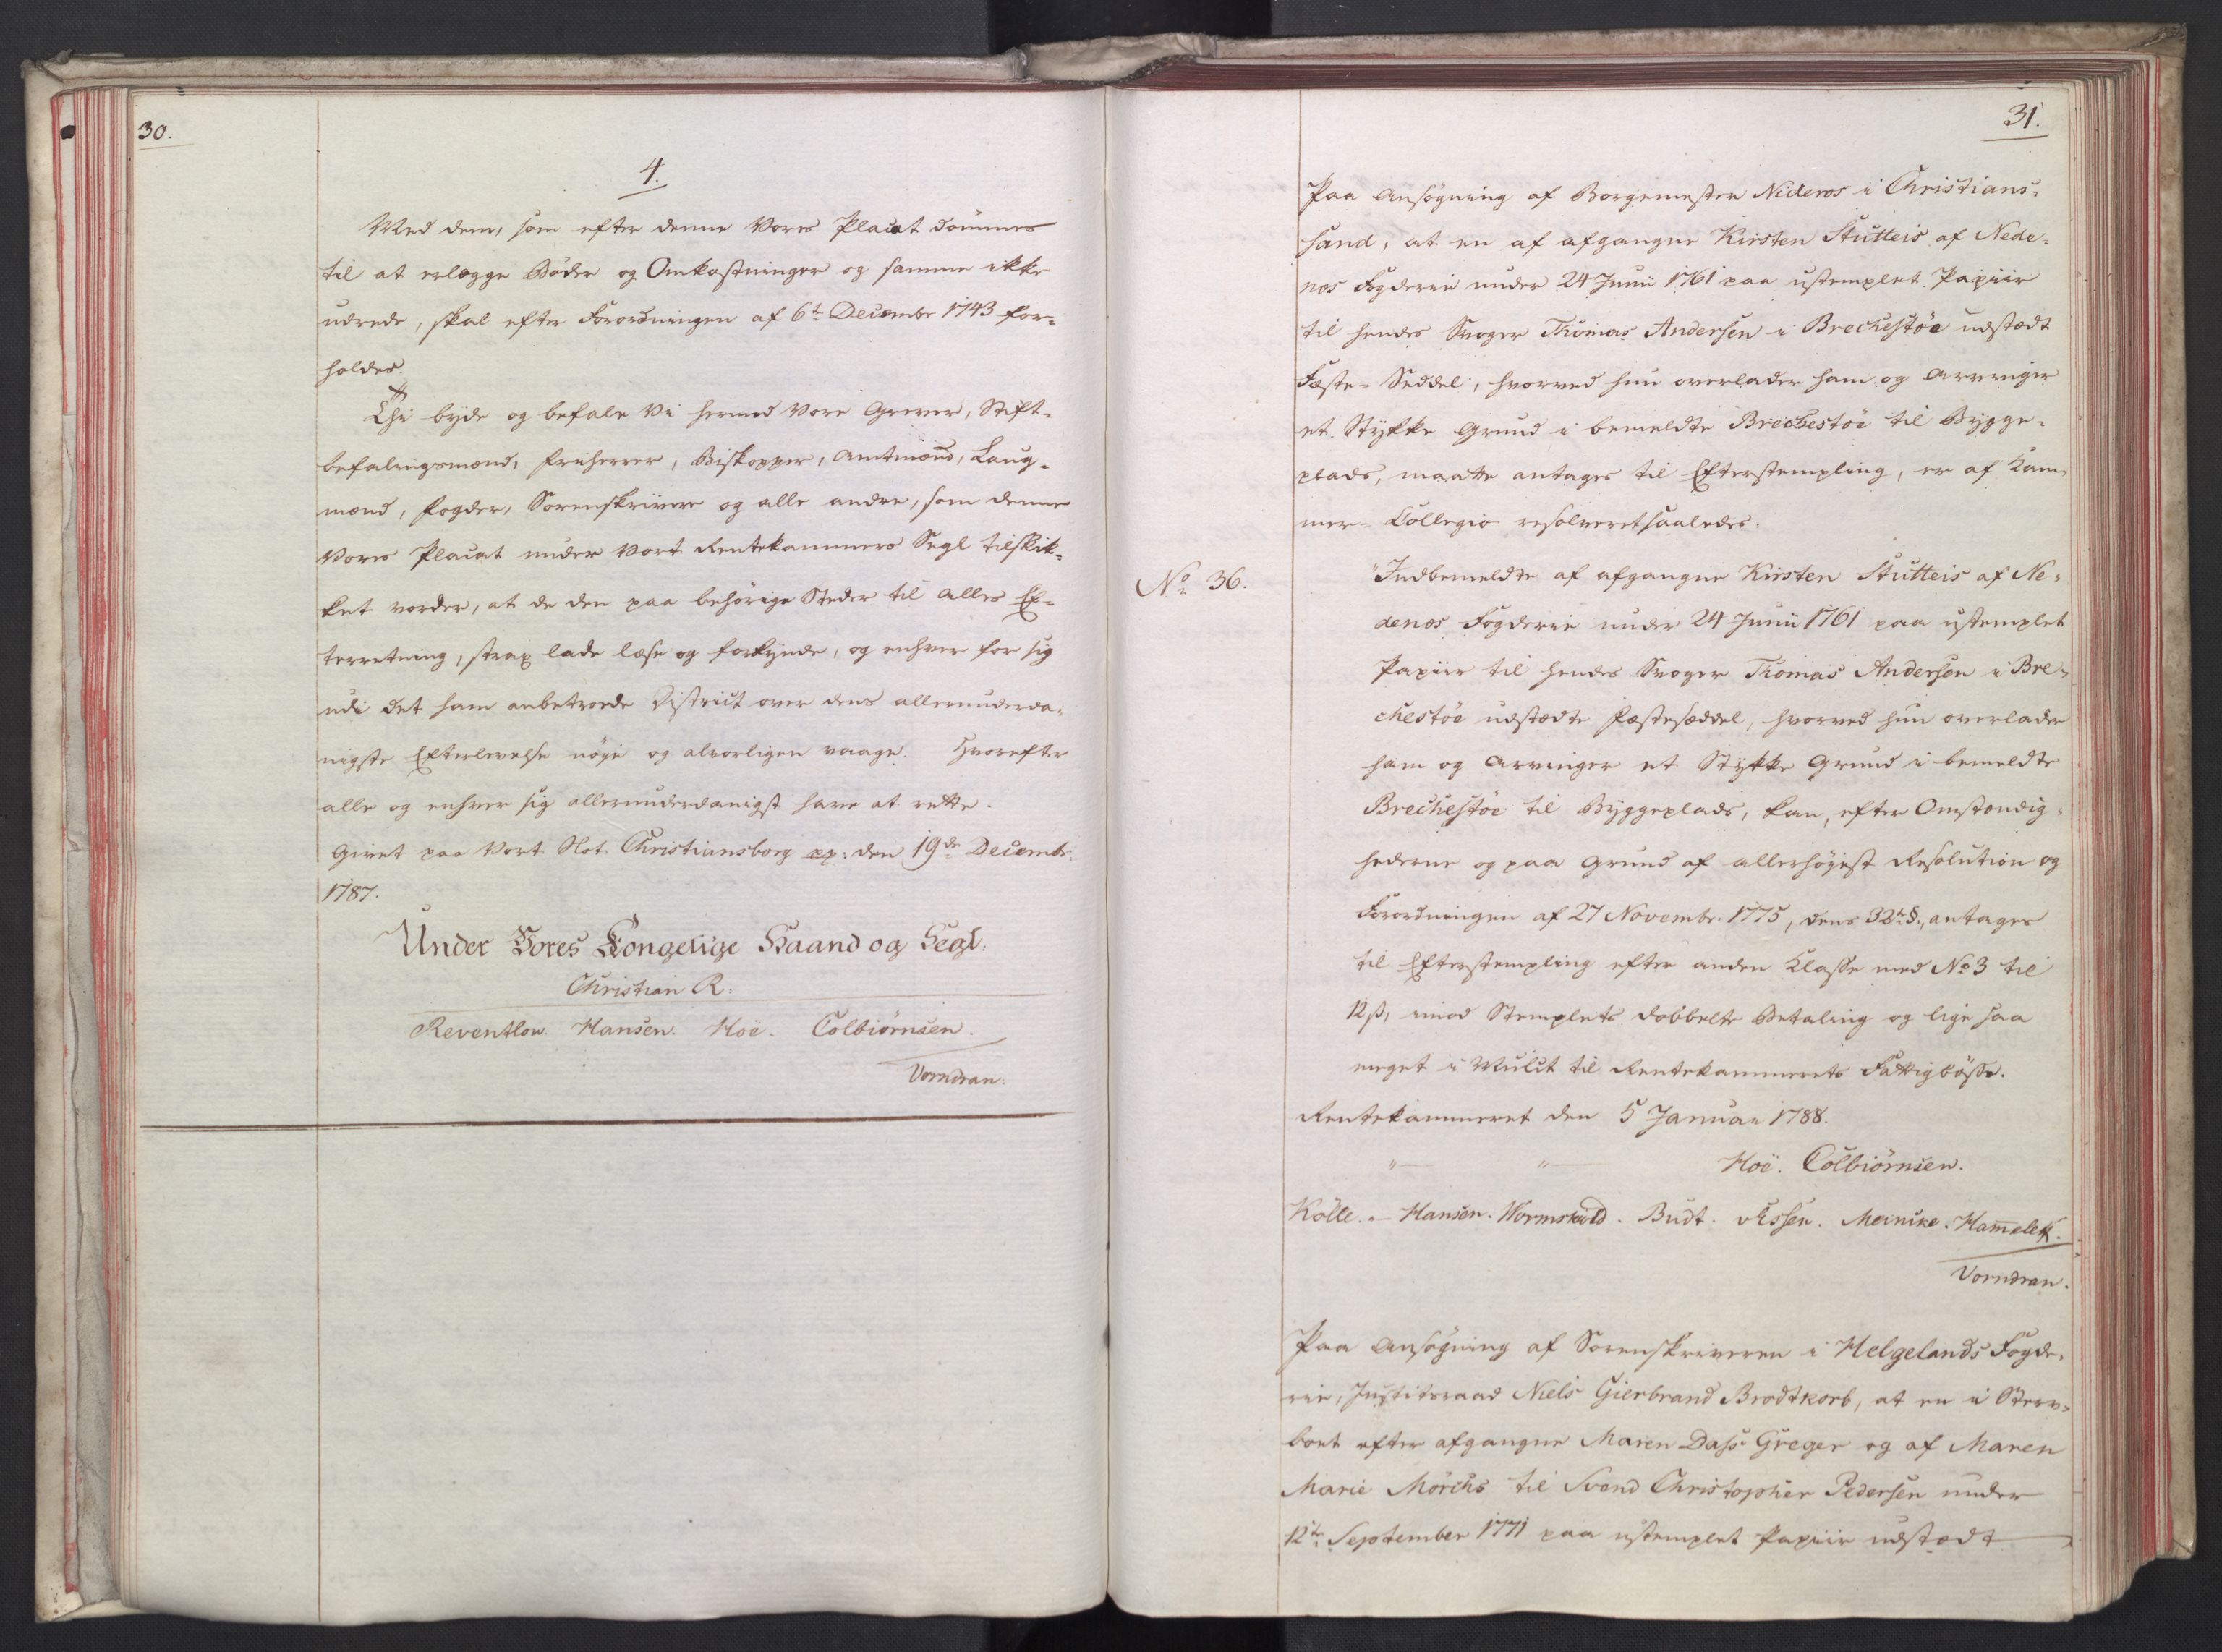 30.
4.
Med dem, som efter denne Vores Placat dömmes
til at erlægge Böder og Omkostninger og samme ikke
udrede, skal efter Forordningen af 6te Decembr 1743 for-
holdes.
Thi byde og befale Vi hermed Vore Grever, Stift-
befalingsmænd, Friherrer, Biskopper, Amtmænd, Laug-
mænd, Fogder, Sorenskrivere og alle andre, som denne
Vores Placat under Vort Rentekammers Segl tilskik-
ket vorder, at de den paa behörige Steder til alles Ef-
terretning, strax lade læse og forkynde, og enhver for sig
udi det ham anbetroede District over dens allerunderda-
nigste Efterlevelse nöye og alvorligen vaage. Hvorefter
alle og enhver sig allerunderdanigst have at rette.
Givet paa Vort Slot Christiansborg pp: den 19de Decembr.
1787.
Under Vores Kongelige Haand og Segl.
Christian R.
Reventlow. Hansen. Hoë. Colbiörnsen.
Vorndran.
31.
Paa Ansögning af Borgemester Nideros i Christians-
sand, at en af afgangne Kirsten Stutteis af Nede-
nes Fogderie under 24 Junii 1761 paa ustemplet Papiir
til hendes Svoger Thomas Andersen i Brechestöe udstædt
Fæste-Seddel, hvorved hun overlader ham og Arvinger
et Stykke Grund i bemeldte Brechestöe til Bygge-
plads, maatte antages til Efterstempling, er af Kam-
mer-Collegio resolveret saaledes.
No 36.
"Indbemeldte af afgangne Kirsten Stutteis af Ne-
denes Fogderie under 24 Junii 1761 paa ustemplet
Papiir til hendes Svoger Thomas Andersen i Bre-
chestöe udstædte Fæsteseddel, hvorved hun overlader
ham og Arvinger et Stykke Grund i bemeldte
Brechestöe til Byggeplads, kan, efter Omstændig-
hederne og paa Grund af allerhöyest Resolution og
Forordningen af 27 Novembr. 1775, dens 32te §., antages
til Efterstempling efter anden Klasse med No 3 til
12 ß, imod Stemplets dobbelte Betaling og lige saa
meget i Mulct til Rentekammerets Fattigbösse.
Rentekammeret den 5 Januar 1788.
" — " — Hoë. Colbiörnsen.
Kölle. — Hansen. Wormskiold. Budt. v Essen. Meinike. Hammeleff.
Vorndran.
Paa Ansögning af Sorenskriveren i Helgelands Fogde-
rie, Justitsraad Niels Gierbrand Brodtkorb, at en i Sterv-
boet efter afgangne Maren Dass Greger og af Maren
Marie Mörchs til Svend Christopher Pedersen under
12te September 1771 paa ustemplet Papiir udstædt